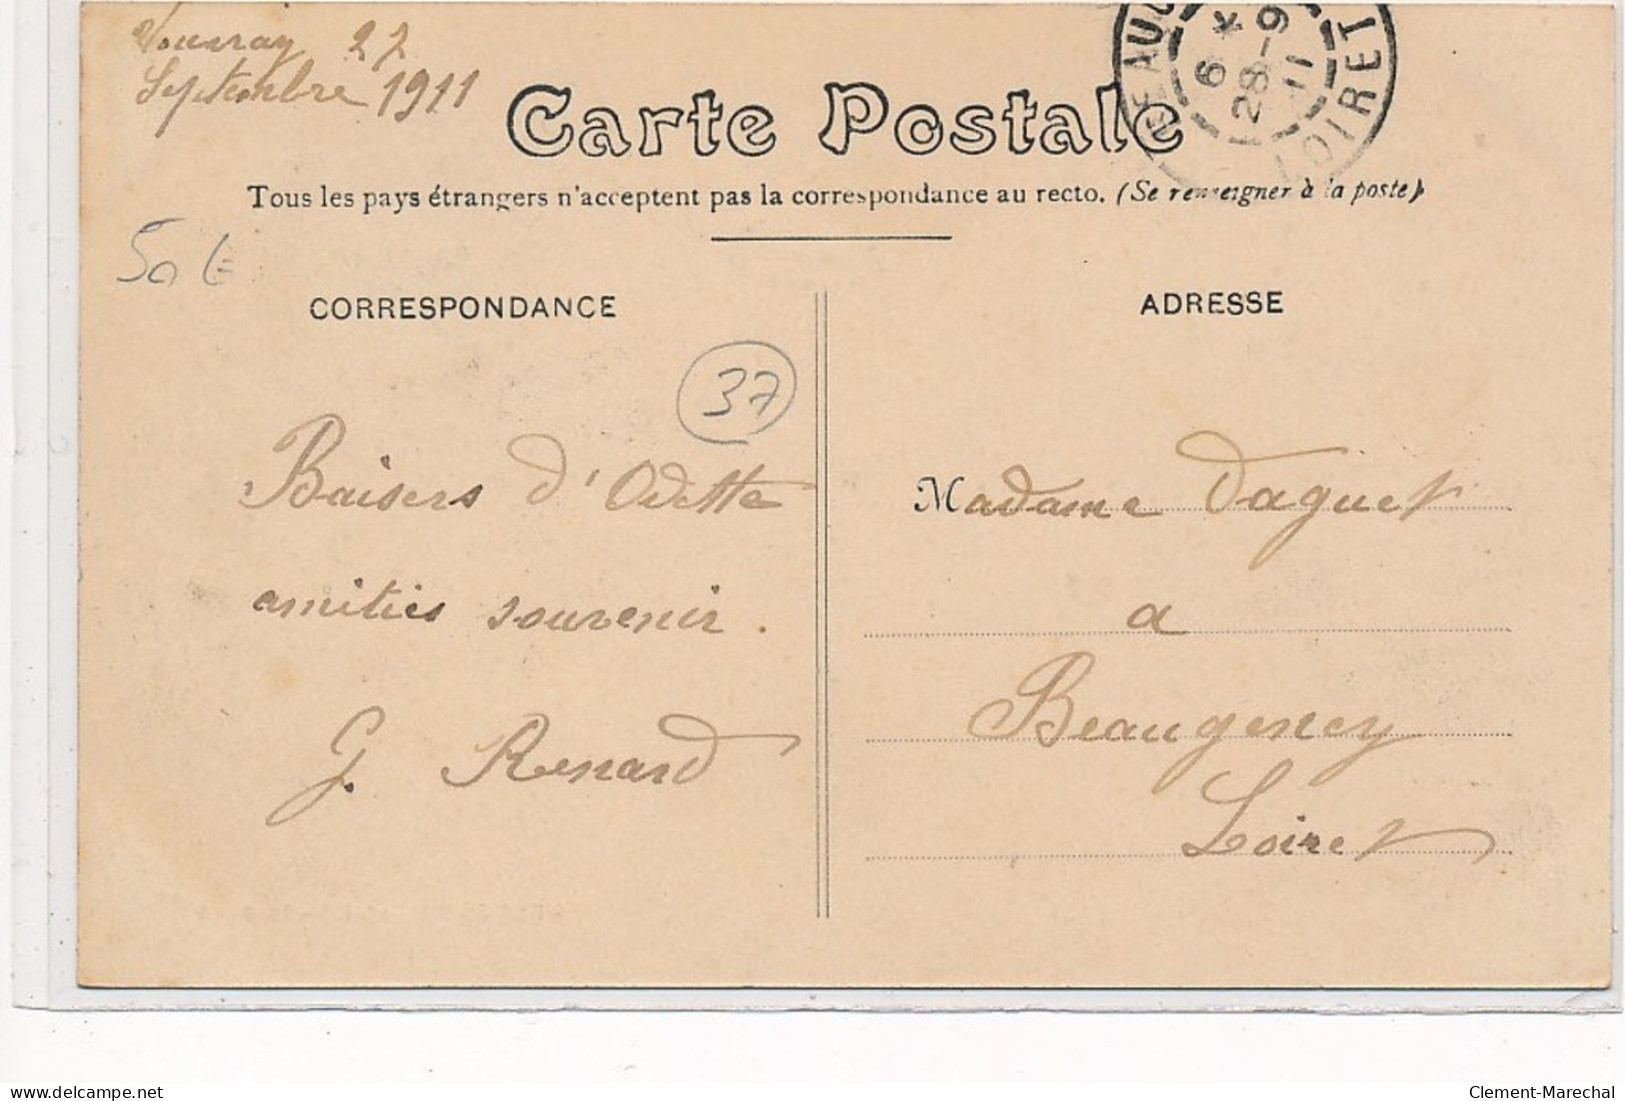 Vouvray 27
Septembre 1911
Carte Postale
Tous les pays étrangers n'acceptent pas la correspondance au recto. (Se renseigner à la poste)
BEAUG
LOIRET
6 *
28-9
11
50 €
CORRESPONDANCE
37
Baisers d'Odette
amitiés souvenir.
G. Renard
ADRESSE
Madame Daguet
a
Beaugency
Loiret
www.delcampe.net
Clement-Marechal